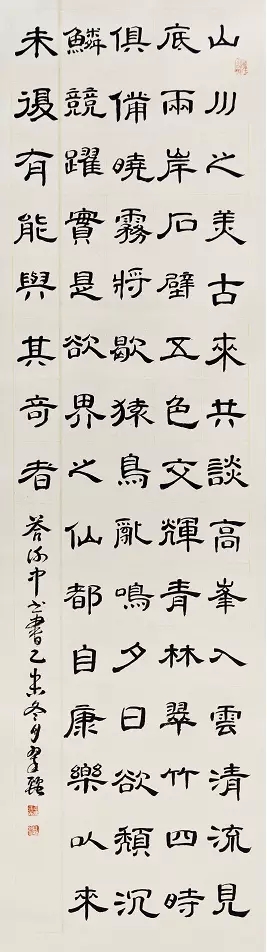 山川之美古來共談高峯入雲清流見
底兩岸石壁五色交輝青林翠竹四時
俱備曉霧將歇猿鳥亂鳴夕日欲頹沉
鱗競躍實是欲界之仙都自康樂以來
未復有能與其奇者 答谢中书書乙未冬月